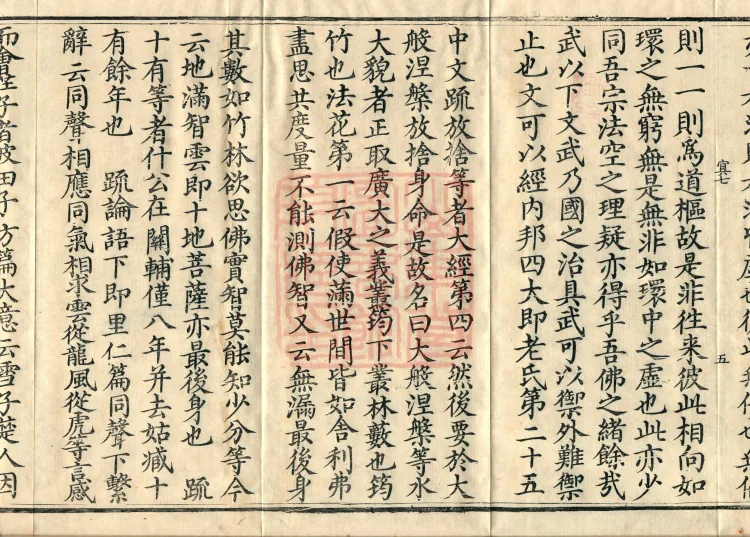 則一一則為道樞故是非往来彼此相向如
環之無窮無是無非如環中之虛也此亦少
同吾宗法空之理疑亦得乎吾佛之緒餘㢤
武以下文武乃國之治具武可以禦外難禦
止也文可以經内邦四大即老氏第二十五
寘七
五
中文䟽放捨等者大經第四云然後要於大
般涅槃放捨身命是故名曰大般涅槃等水
大貌者正取廣大之義叢筠下叢林藪也筠
竹也法花第一云假使蒲世間皆如舍利弗
盡思共度量不能測佛智又云無漏最後身
其數如竹林欲思佛實智莫能知少分等今
云地滿智雲即十地菩薩亦最後身也 䟽
十有等者什公在關輔僅八年并去姑臧十
有餘年也 䟽論語下即里仁篇同聲下繫
辭云同聲相應同氣相求雲從龍風從虎等言感
而會聖子者彼田子方篇大意云雪子楚人因